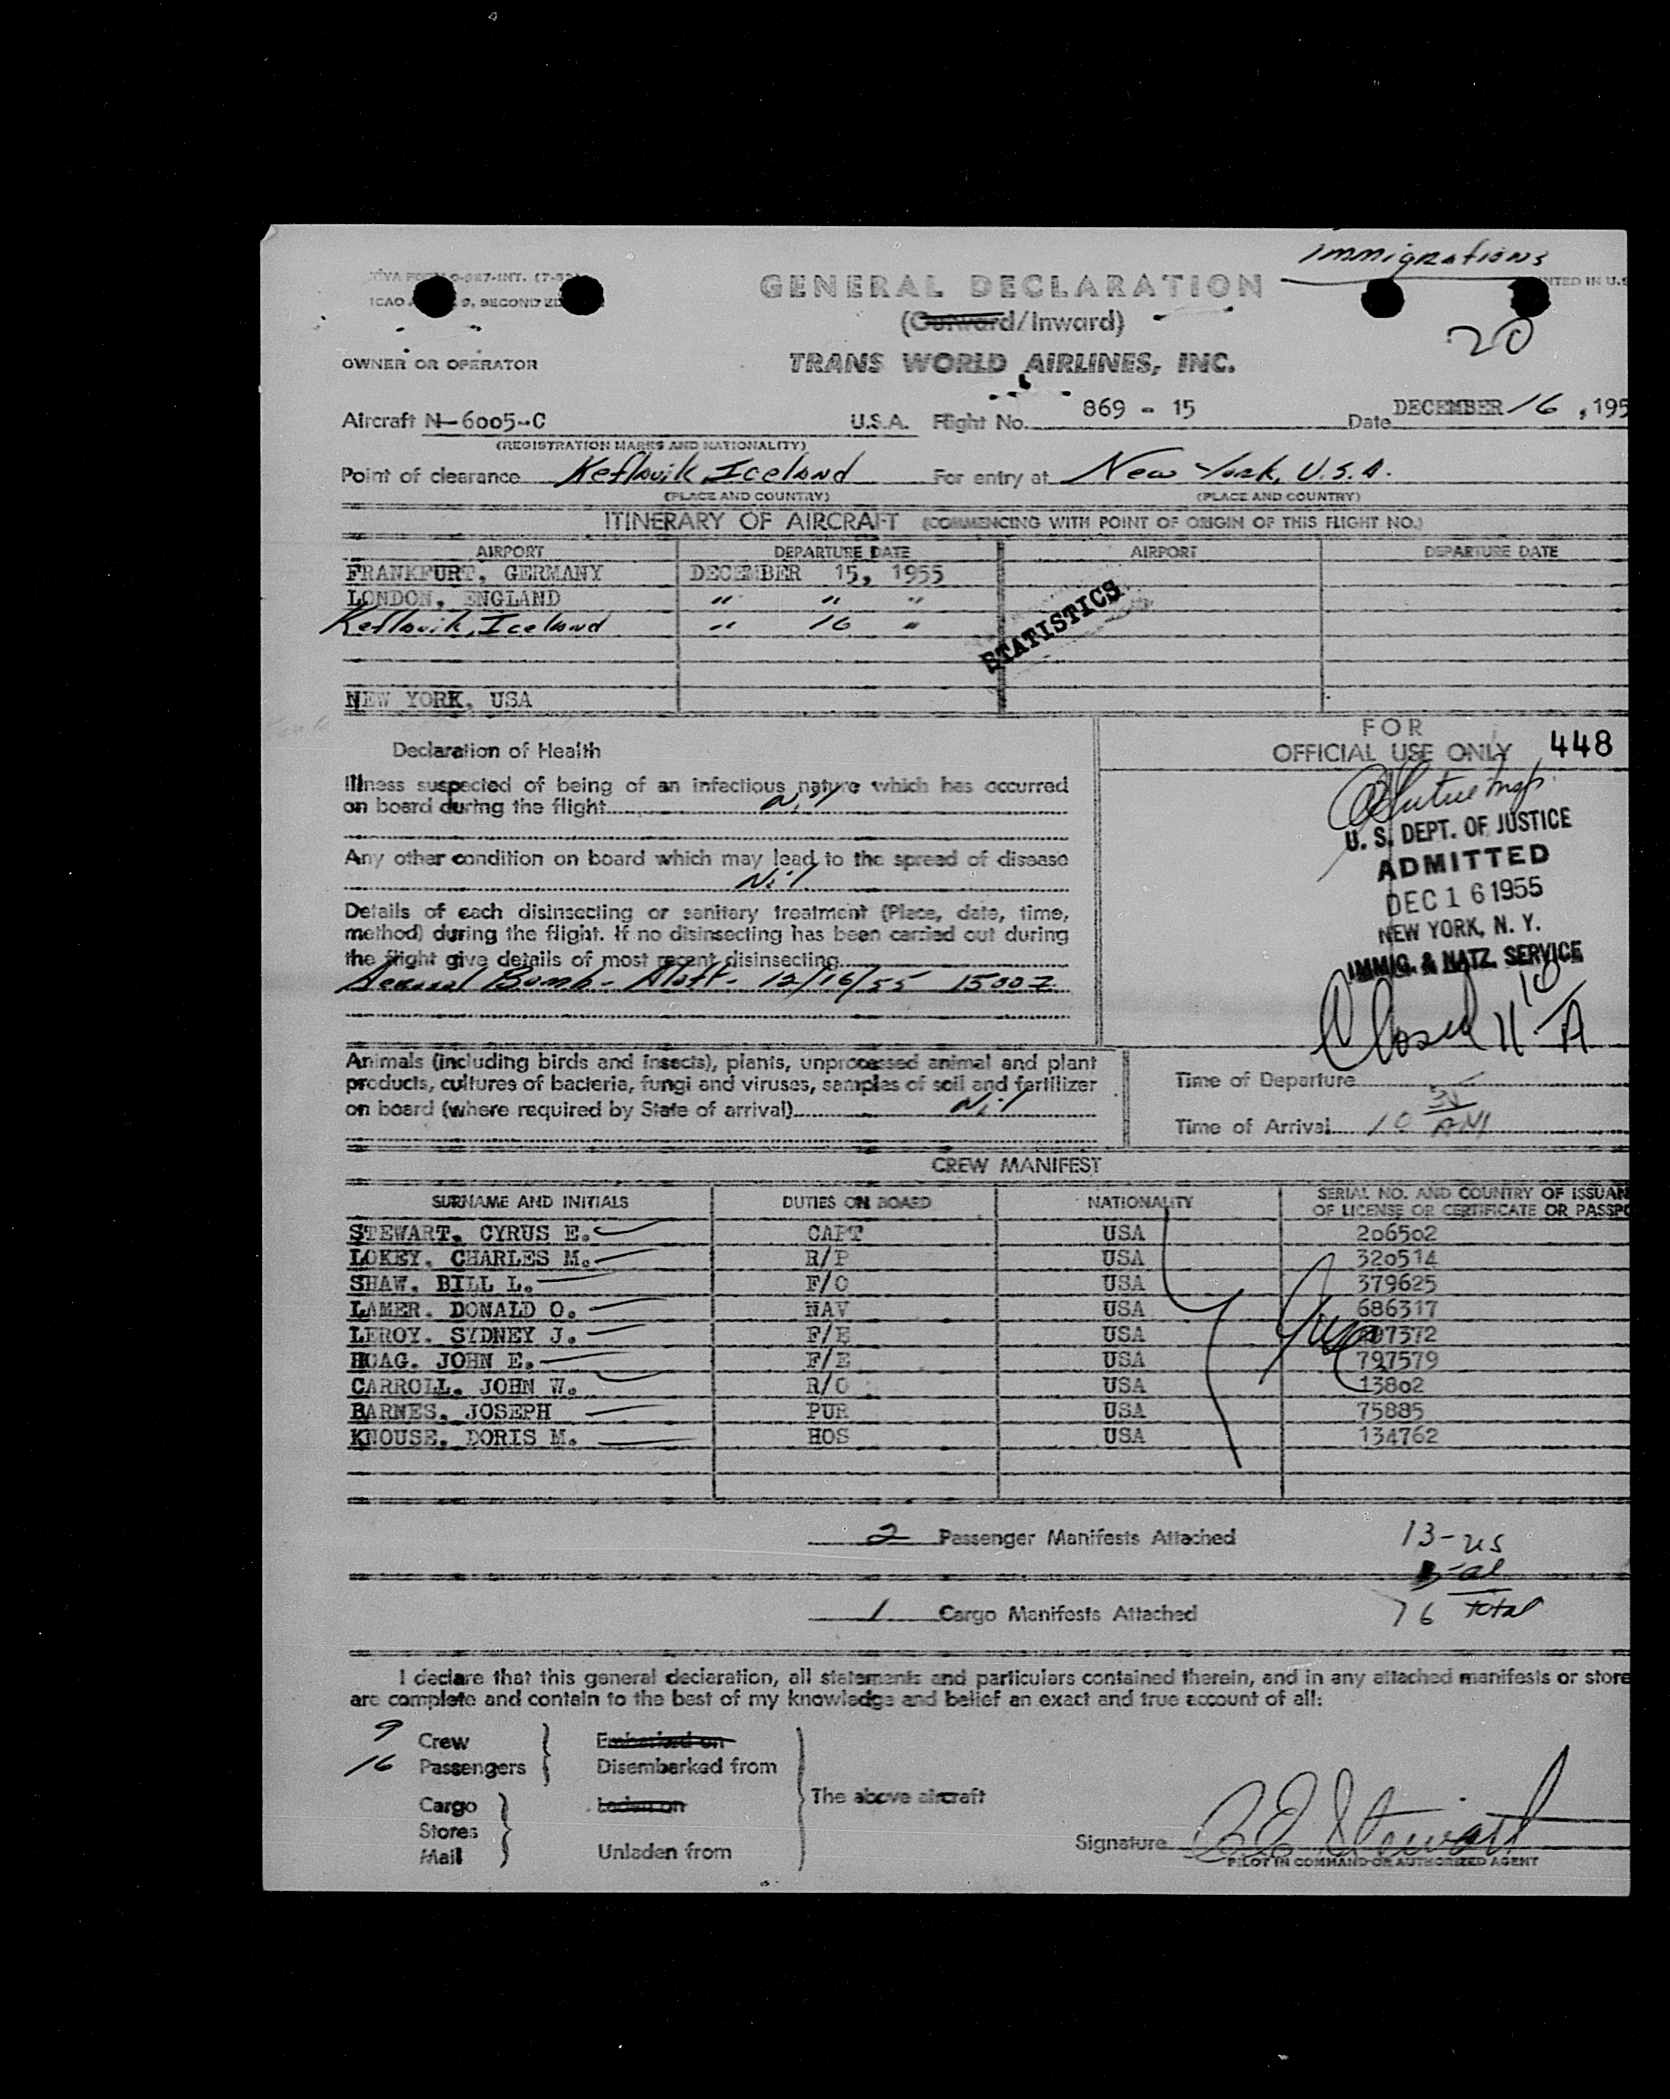 immigrations
GENERAL DECLARATION
(Outward/Inward)
20
OWNER OR OPERATOR
TRANS WORLD AIRLINES, INC.
Aircraft N-6005-C U.S.A. Flight No. 869 - 15 Date DECEMBER 16, 195
(REGISTRATION MARKS AND NATIONALITY)
Point of clearance Keflavik, Iceland For entry at New York, U.S.A.
(PLACE AND COUNTRY) (PLACE AND COUNTRY)
ITINERARY OF AIRCRAFT (COMMENCING WITH POINT OF ORIGIN OF THIS FLIGHT NO.)
AIRPORT DEPARTURE DATE AIRPORT DEPARTURE DATE
FRANKFURT, GERMANY DECEMBER 15, 1955
LONDON, ENGLAND " " "
Keflavik, Iceland " 16 "
STATISTICS
NEW YORK, USA
FOR
OFFICIAL USE ONLY 448
Declaration of Health
Illness suspected of being of an infectious nature which has occurred
on board during the flight Nil
Any other condition on board which may lead to the spread of disease
Nil
Details of each disinsecting or sanitary treatment (Place, date, time,
method) during the flight. If no disinsecting has been carried out during
the flight give details of most recent disinsecting
Aerosol Bomb - Aloft - 12/16/55 1500Z
U. S. DEPT. OF JUSTICE
ADMITTED
DEC 16 1955
NEW YORK, N. Y.
IMMIG. & NATZ. SERVICE
Closed 11 10 A
Animals (including birds and insects), plants, unprocessed animal and plant
products, cultures of bacteria, fungi and viruses, samples of soil and fertilizer
on board (where required by State of arrival) Nil
Time of Departure
Time of Arrival 10 35 AM
CREW MANIFEST
SURNAME AND INITIALS DUTIES ON BOARD NATIONALITY SERIAL NO. AND COUNTRY OF ISSUAN
OF LICENSE OR CERTIFICATE OR PASSPO
STEWART, CYRUS E. CAPT USA 206502
LOKEY, CHARLES M. R/P USA 320514
SHAW, BILL L. F/O USA 379625
LAMER, DONALD O. NAV USA 686317
LEROY, SYDNEY J. F/E USA 7372
HOAG, JOHN E. F/E USA 797579
CARROLL, JOHN W. R/O USA 13802
BARNES, JOSEPH PUR USA 75885
KNOUSE, DORIS M. HOS USA 134762
2 Passenger Manifests Attached 13 - US
3 - al
1 Cargo Manifests Attached 16 Total
I declare that this general declaration, all statements and particulars contained therein, and in any attached manifests or store
are complete and contain to the best of my knowledge and belief an exact and true account of all:
9 Crew Embarked on
16 Passengers Disembarked from
The above aircraft
Cargo Laden on
Stores
Mail Unladen from
Signature C E Stewart
PILOT IN COMMAND OR AUTHORIZED AGENT